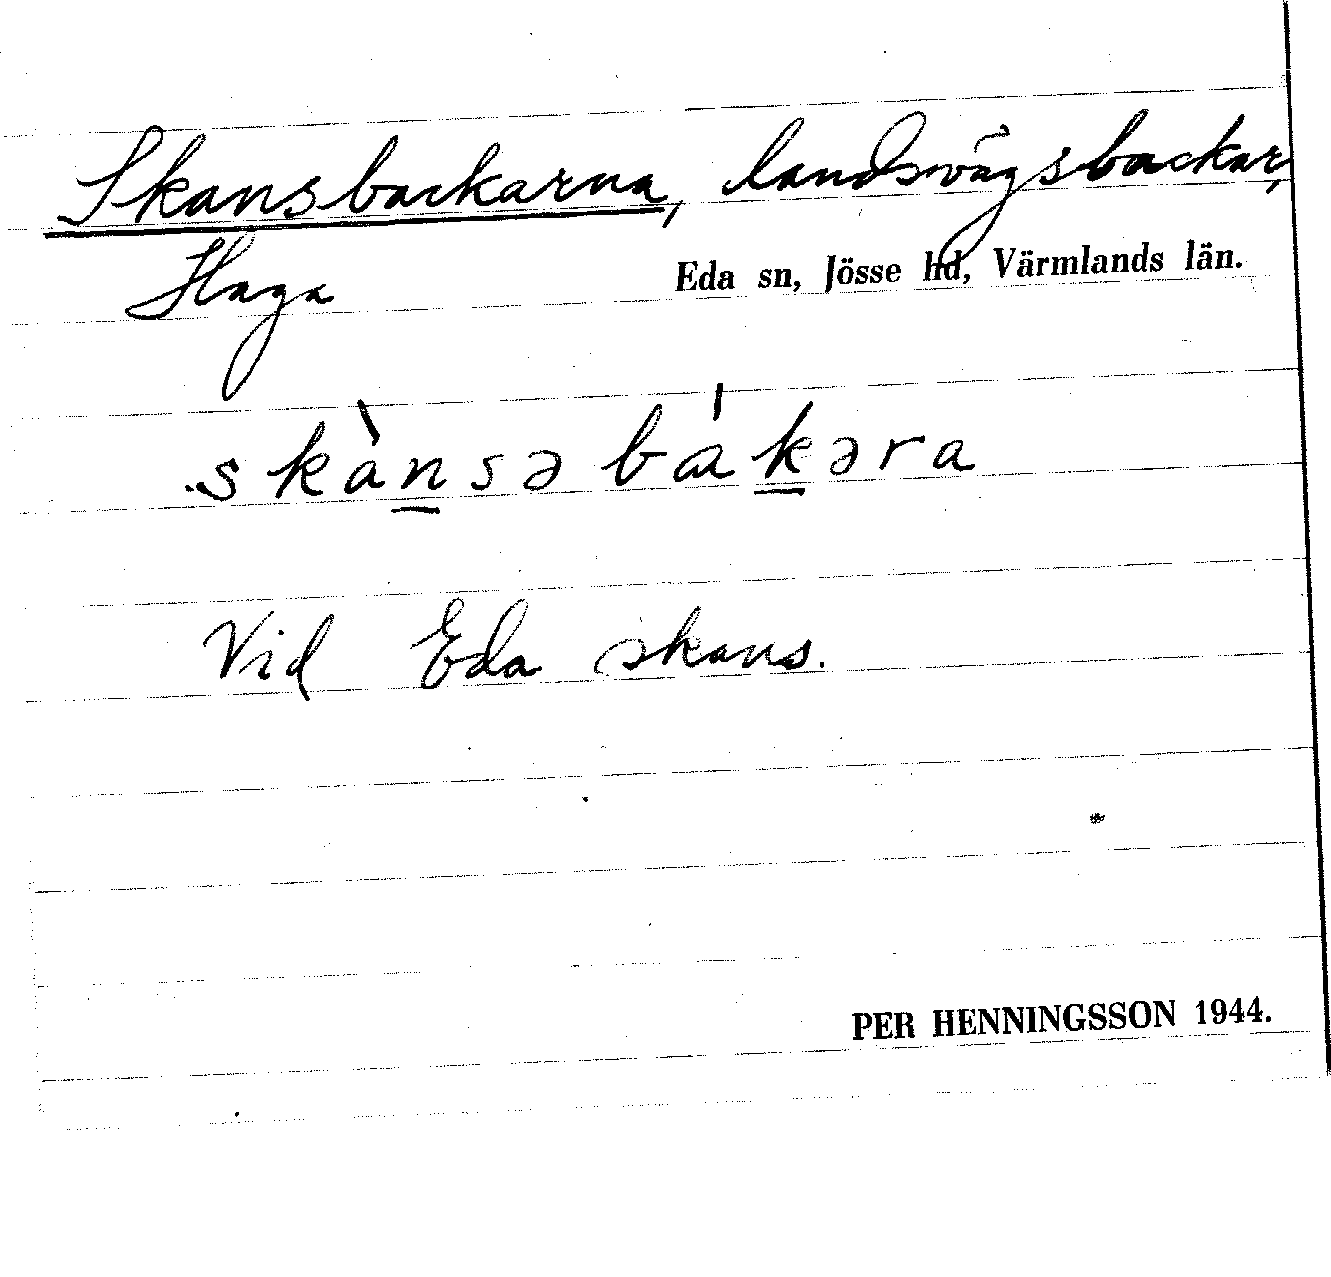 Skansbackarna, landsvägsbackar,
Haga Eda sn, Jösse hd, Värmlands län.
skànsə bákəra
Vid Eda skans.
PER HENNINGSSON 1944.